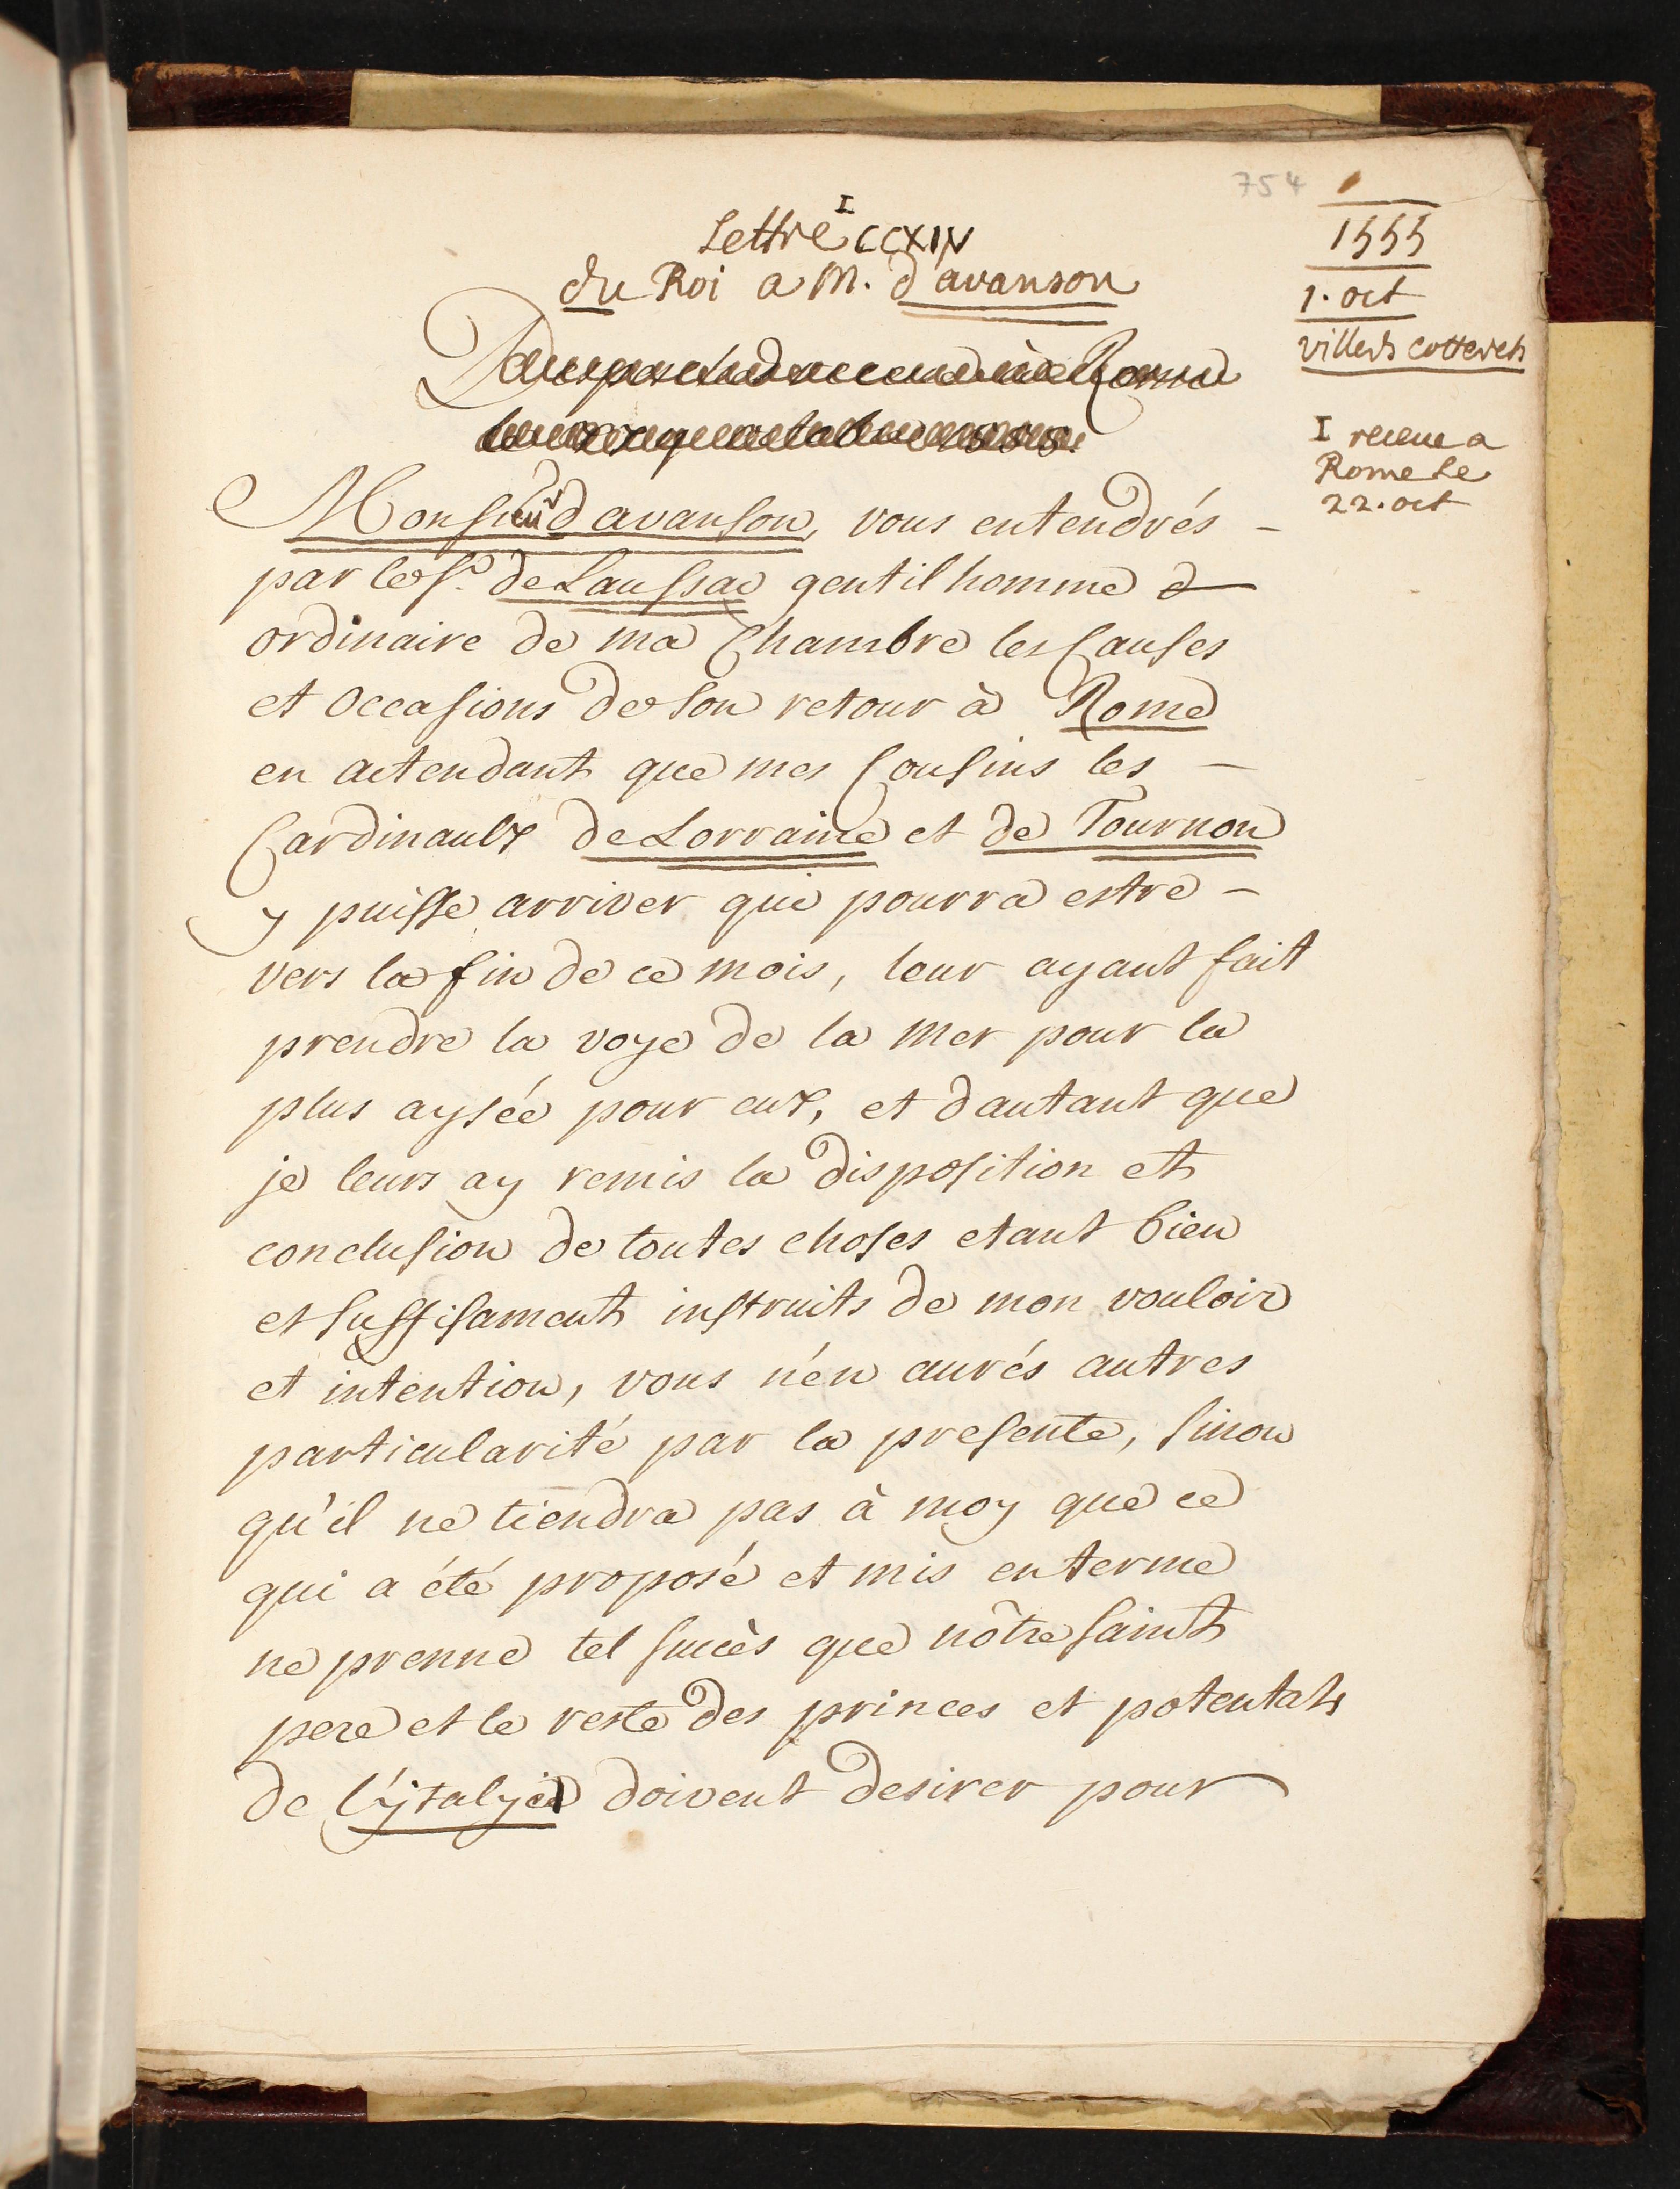 754
1555
1. oct
villers cotterets
I receue a
Rome le
22. oct
Lettre I CCXIV
du Roi a M. d'avanson
Monsieur d'avanson, vous entendrés -
par le Sr. de Laussac gentil homme
ordinaire de ma Chambre les Causes
et occasions de son retour à Rome
en attendant que mes Cousins les -
Cardinaulx de Lorraine et de Tournon
y puisse arriver qui pourra estre -
vers la fin de ce mois, leur ayant fait
prendre la voye de la mer pour la
plus aysée pour eux, et dautant que
je leurs ay remis la disposition et
conclusion de toutes choses etant bien
et suffisament instruits de mon vouloir
et intention, vous n'en aurés autres
particularité par la presente, sinon
qu'il ne tiendra pas à moy que ce
qui a été proposé et mis en terme
ne prenne tel succès que nôtre saint
pere et le reste des princes et potentats
de l'ÿtalye doivent desirer pour